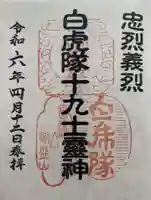 忠烈義烈
白虎隊十九士靈神
令和六年四月十二日奉拝
白虎隊